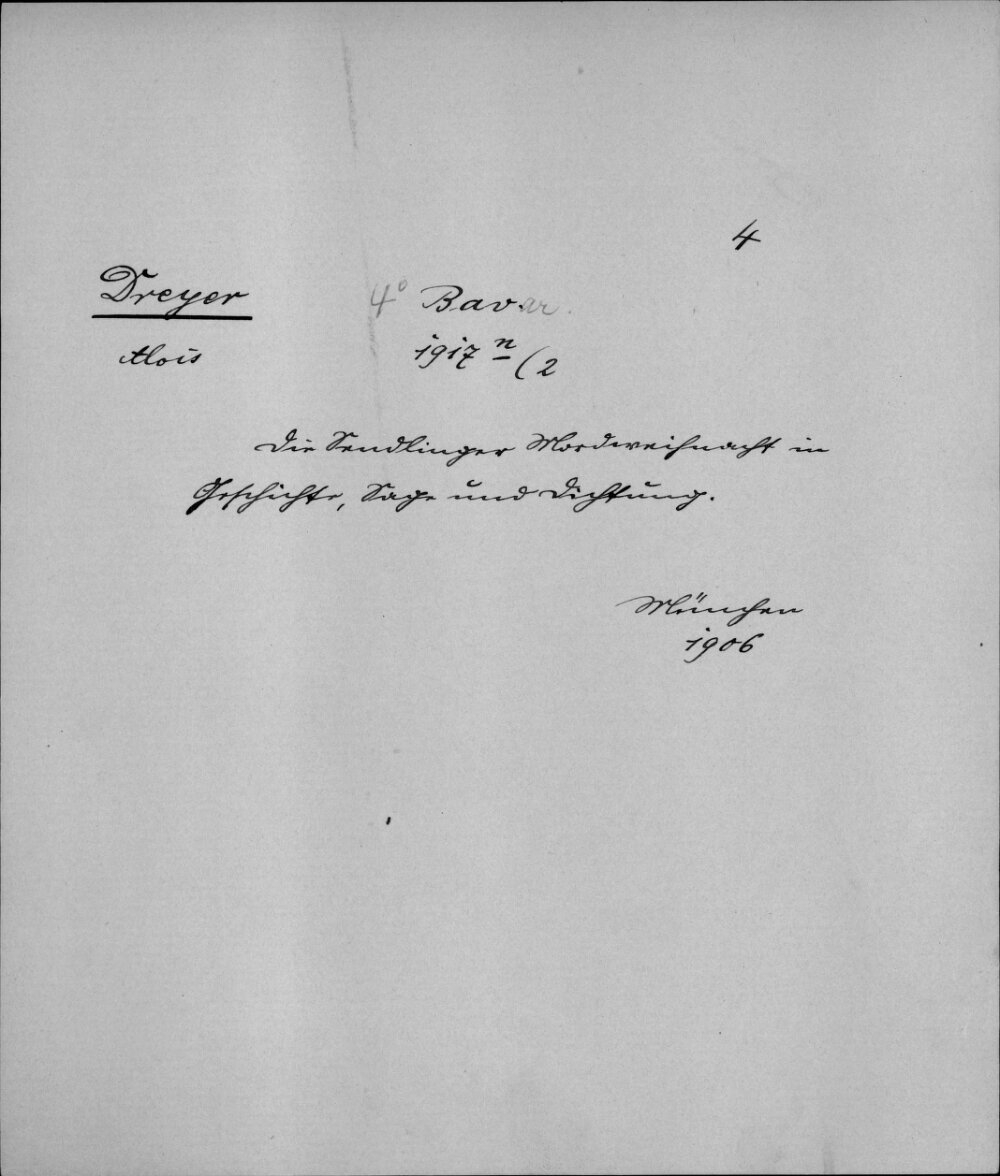 4
Dreyer 4° Bavar.
Alois 1917 n (2
Die Sendlinger Mordweihnacht in
Geschichte, Sage und Dichtung.
München
1906